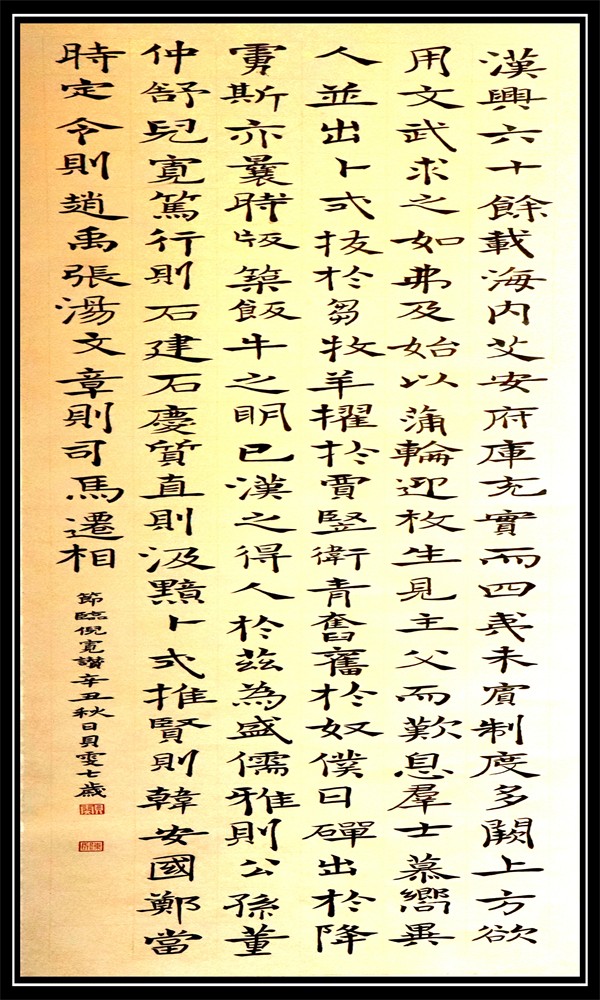 漢興六十餘載海内艾安府庫充實而四夷未賓制度多闕上方欲
用文武求之如弗及始以蒲輪迎枚生見主父而歎息羣士慕嚮異
人並出卜式拔於芻牧羊擢於賈竪衛青奮於奴僕日磾出於降
虜斯亦曩時版築飯牛之明已漢之得人於茲為盛儒雅則公孫董
仲舒兒寬篤行則石建石慶質直則汲黯卜式推賢則韓安國鄭當
時定令則趙禹張湯文章則司馬遷相
節臨倪寬讚辛丑秋日貝雯七歲